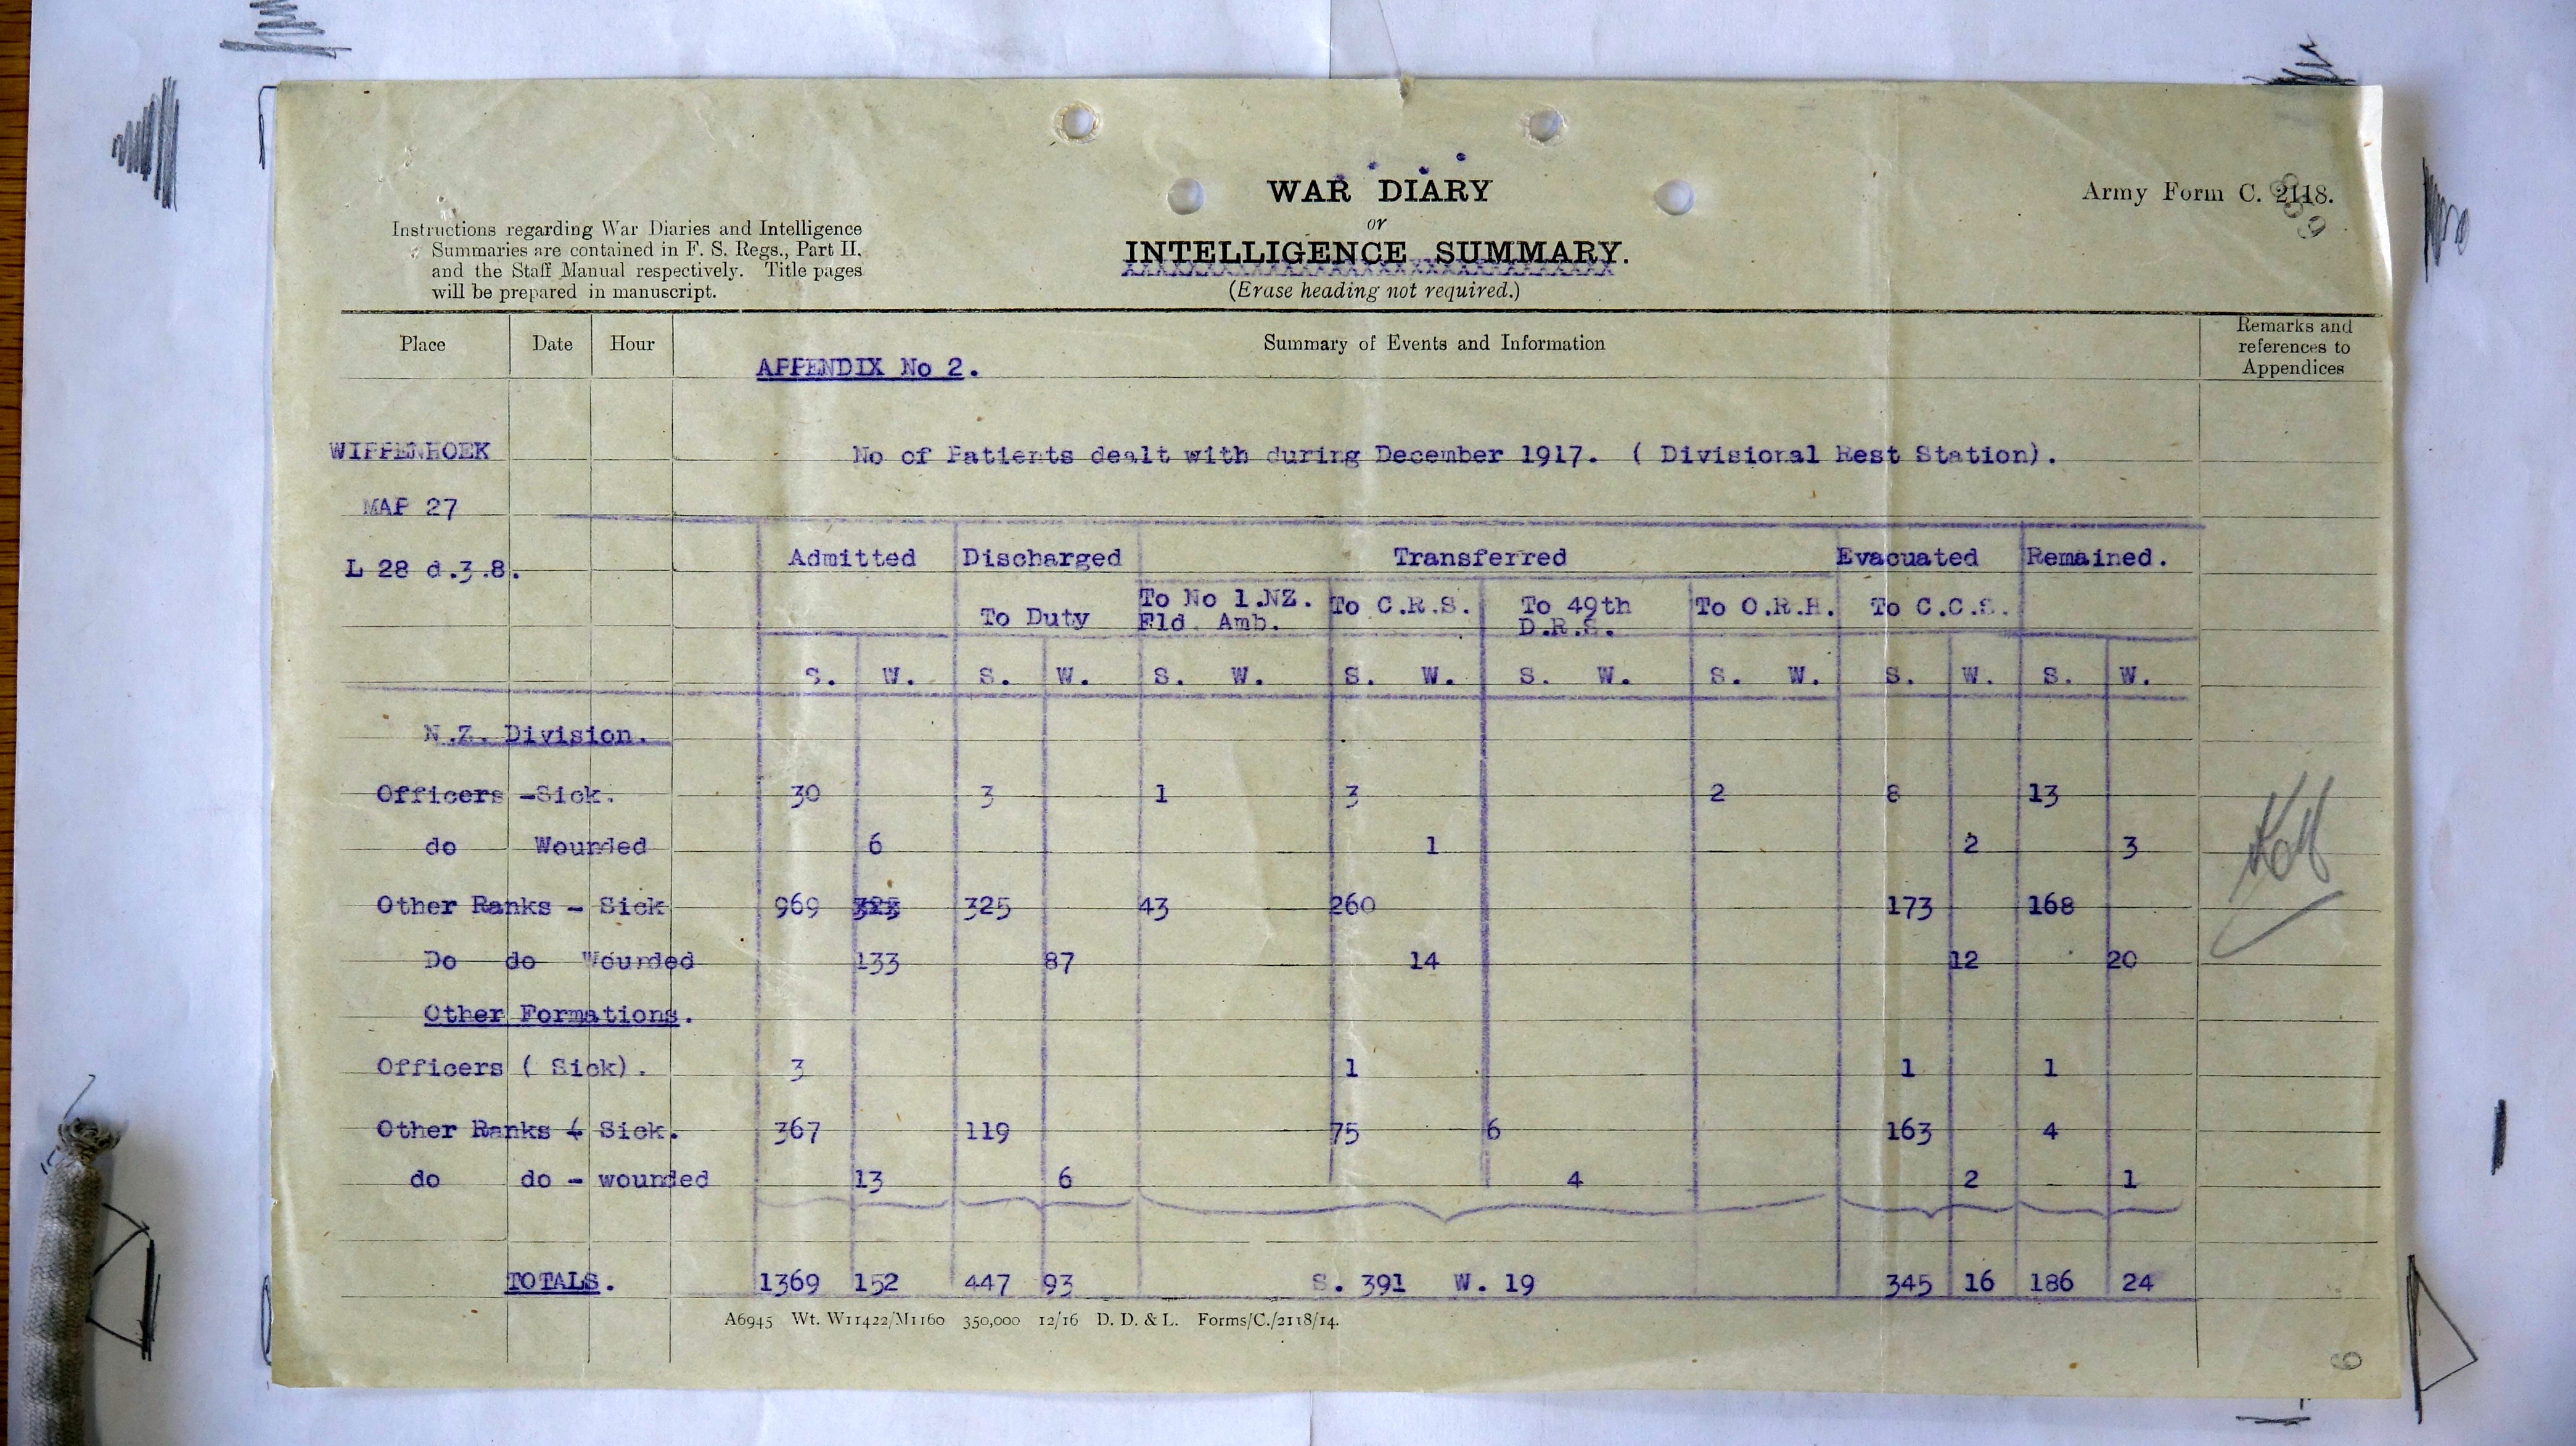 WAR DIARY
or
INTELLIGENCE SUMMARY.
(Erase heading not required.)
Army Form C. 2118.
Instructions regarding War Diaries and Intelligence
Summaries are contained in F. S. Regs., Part II.
and the Staff Manual respectively. Title pages
will be prepared in manuscript.
Place Date Hour Summary of Events and Information Remarks and references to Appendices
APPENDIX No 2.
WIPPENHOEK No of Patients dealt with during December 1917. ( Divisional Rest Station).
MAP 27
L 28 d.3.8.
Admitted Discharged Transferred Evacuated Remained.
To Duty To No 1.NZ. Fld. Amb. To C.R.S. To 49th D.R.S. To O.R.H. To C.C.S.
S. W. S. W. S. W. S. W. S. W. S. W. S. W. S. W.
N.Z. Division.
Officers -Sick. 30 3 1 3 2 8 13
do Wounded 6 1 2 3
Other Ranks - Sick 969 325 43 260 173 168
Do do Wounded 133 87 14 12 20
Other Formations.
Officers ( Sick). 3 1 1 1
Other Ranks ( Sick. 367 119 75 6 163 4
do do - wounded 13 6 4 2 1
TOTALS. 1369 152 447 93 S. 391 W. 19 345 16 186 24
A6945 Wt. W11422/M1160 350,000 12/16 D. D. & L. Forms/C./2118/14.